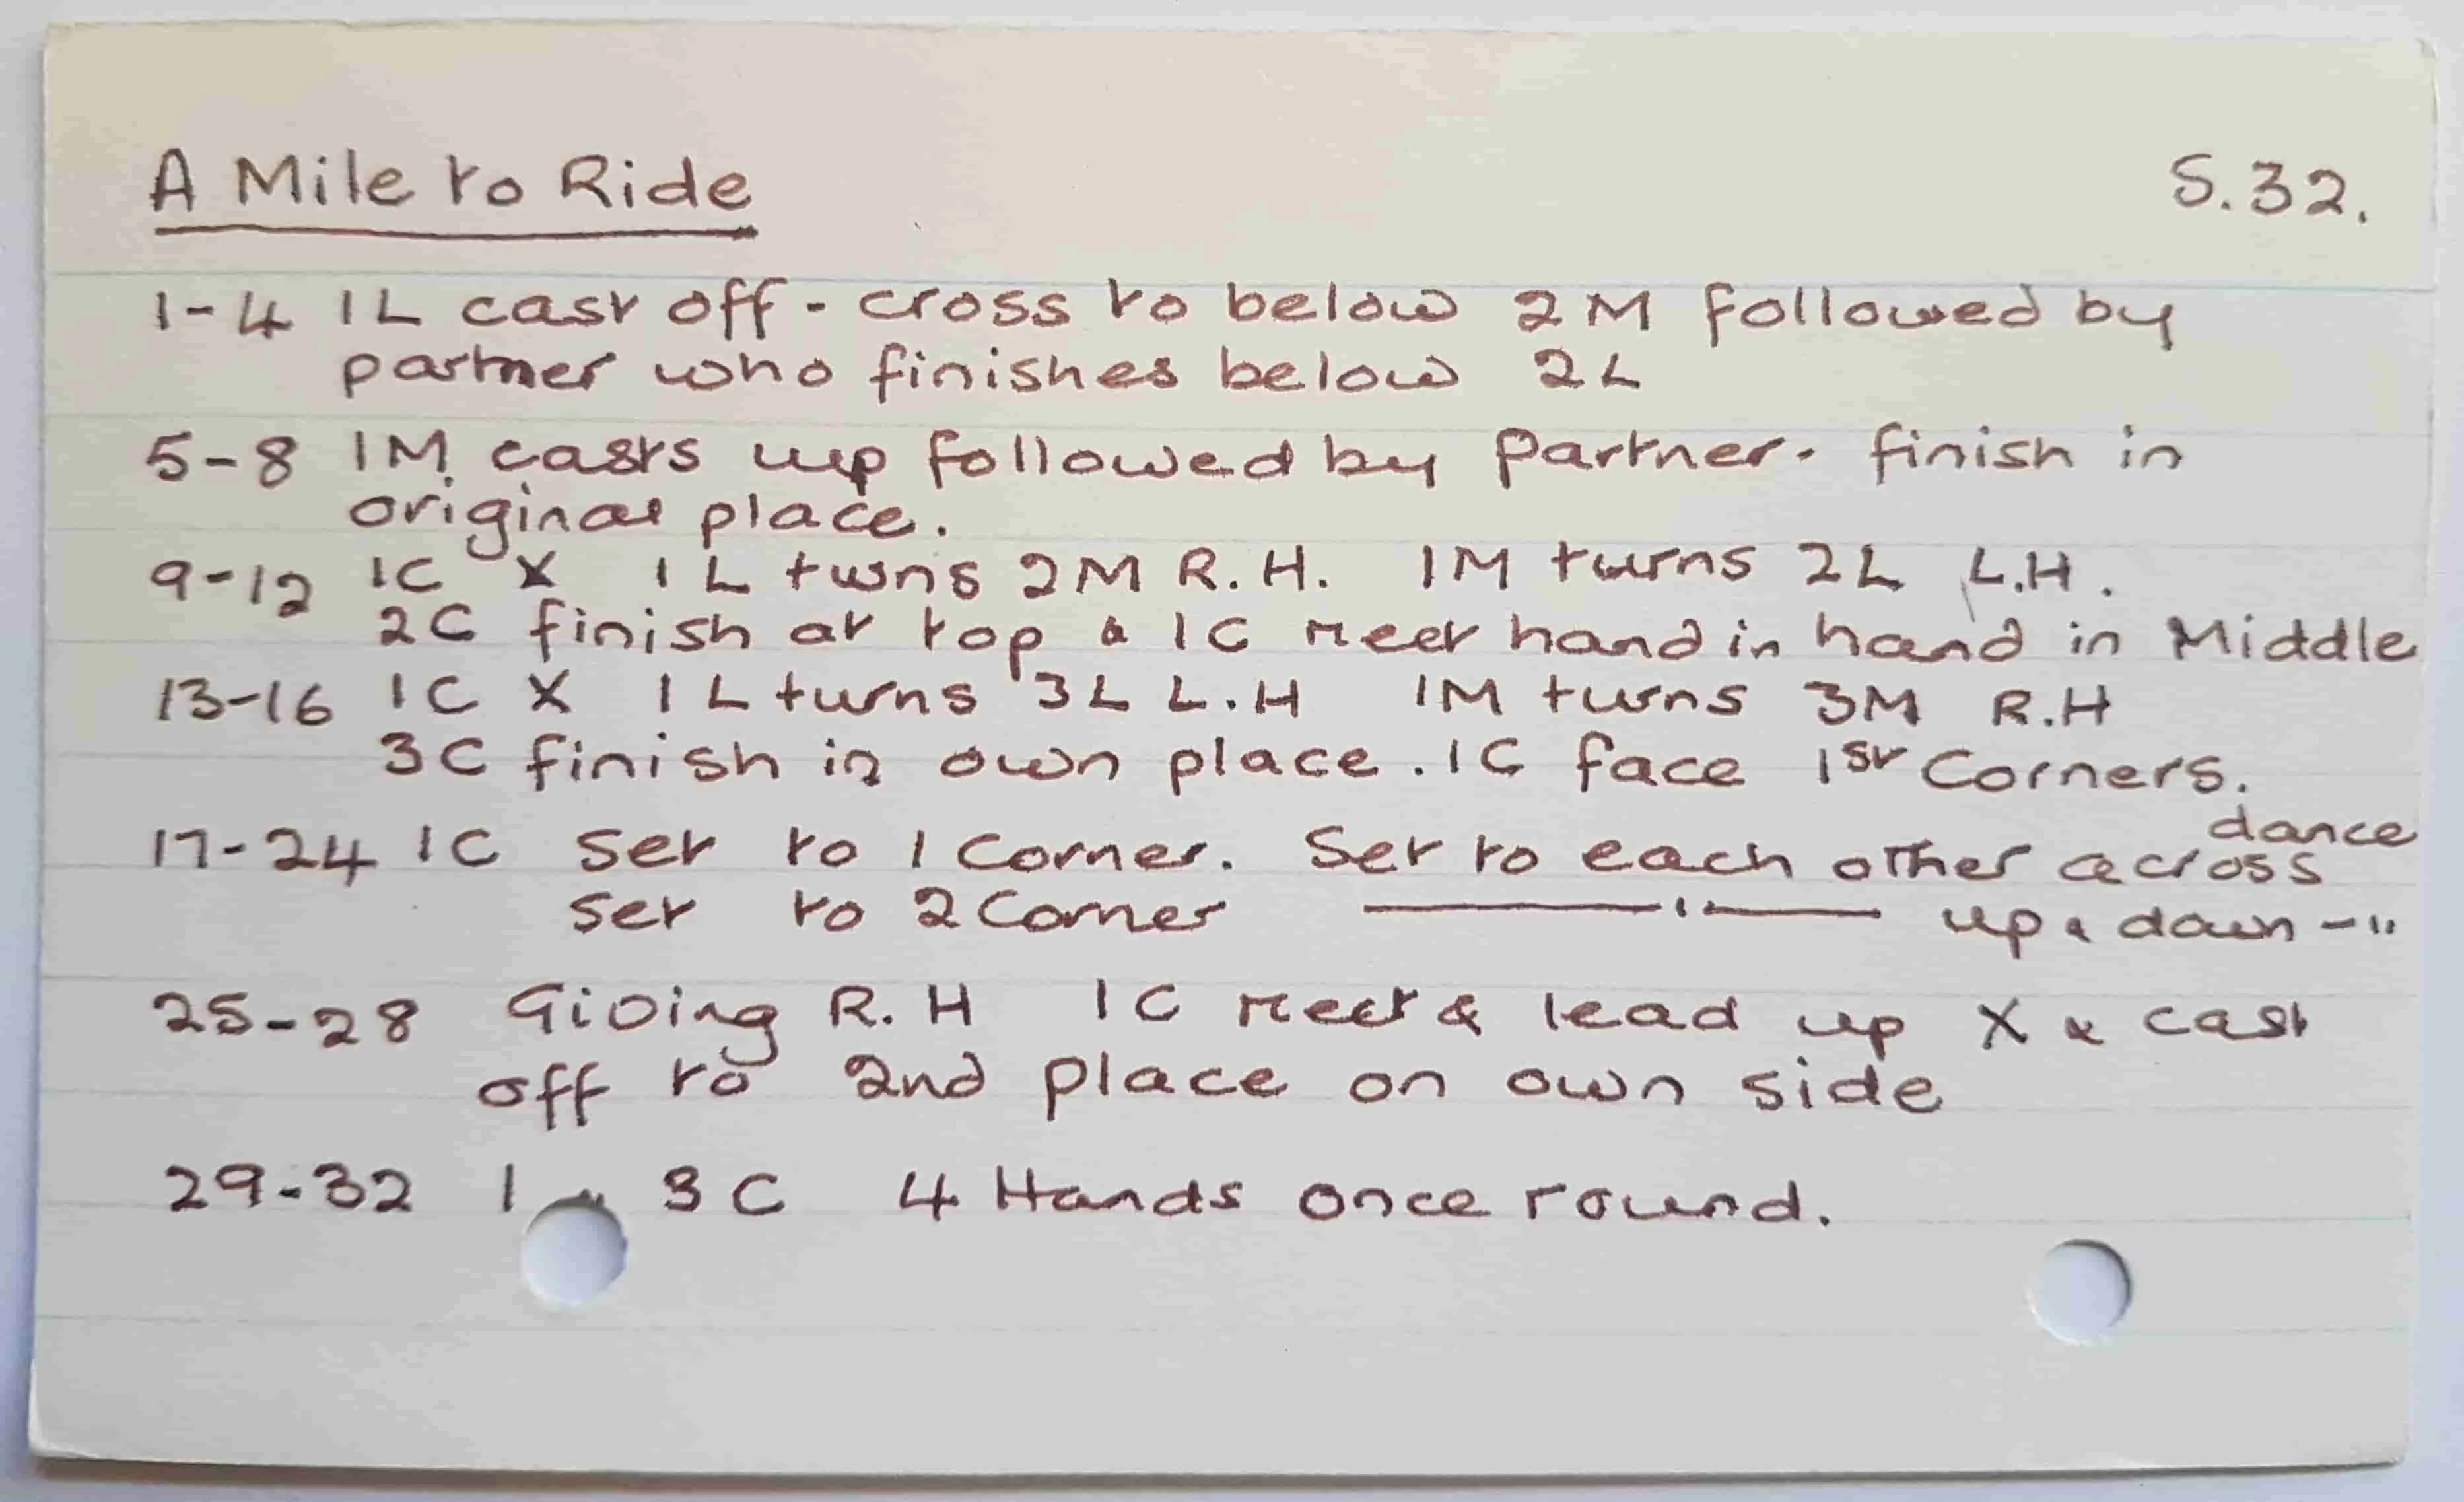 A Mile to Ride S.32.
1-4 1L cast off - cross to below 2M followed by
partner who finishes below 2L
5-8 1M casts up followed by partner. finish in
original place.
9-12 1C X 1L turns 2M R.H. 1M turns 2L L.H.
2C finish at top & 1C meet hand in hand in Middle
13-16 1C X 1L turns 3L L.H 1M turns 3M R.H
3C finish in own place. 1C face 1st Corners.
dance
17-24 1C set to 1 Corner. Set to each other across
set to 2 Corner —"— up & down -"
25-28 Giving R.H 1C meet & lead up X & cast
off to 2nd place on own side
29-32 1 & 3C 4 Hands once round.